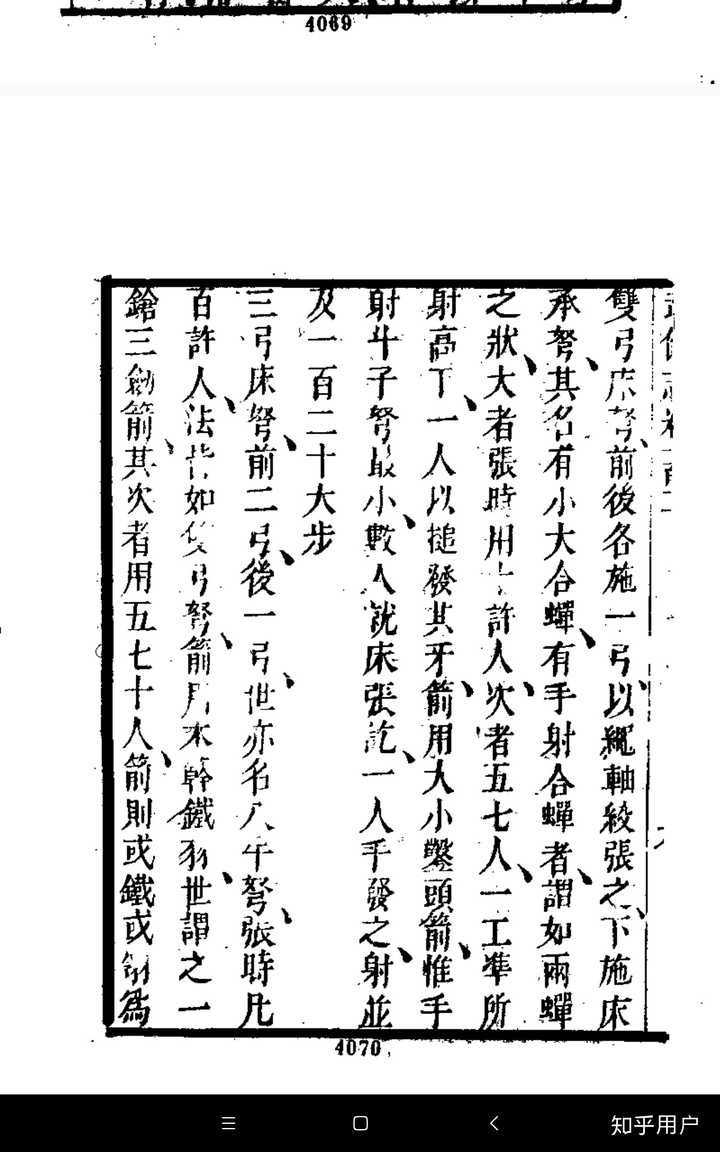 4069
雙弓床弩前後各施一弓以繩軸絞張之下施床
承弩其名有小大合蟬有手射合蟬者謂如兩蟬
之狀大者張時用十許人次者五七人一工準所
射高下一人以搥發其牙箭用大小鑿頭箭惟手
射斗子弩最小數人就床張訖一人手發之射並
及一百二十大步
三弓床弩前二弓後一弓世亦名八牛弩張時凡
百許人法皆如雙弓弩箭用木幹鐵羽世謂之一
鎗三劍箭其次者用五七十人箭則或鐵或翎為
4070
知乎用户